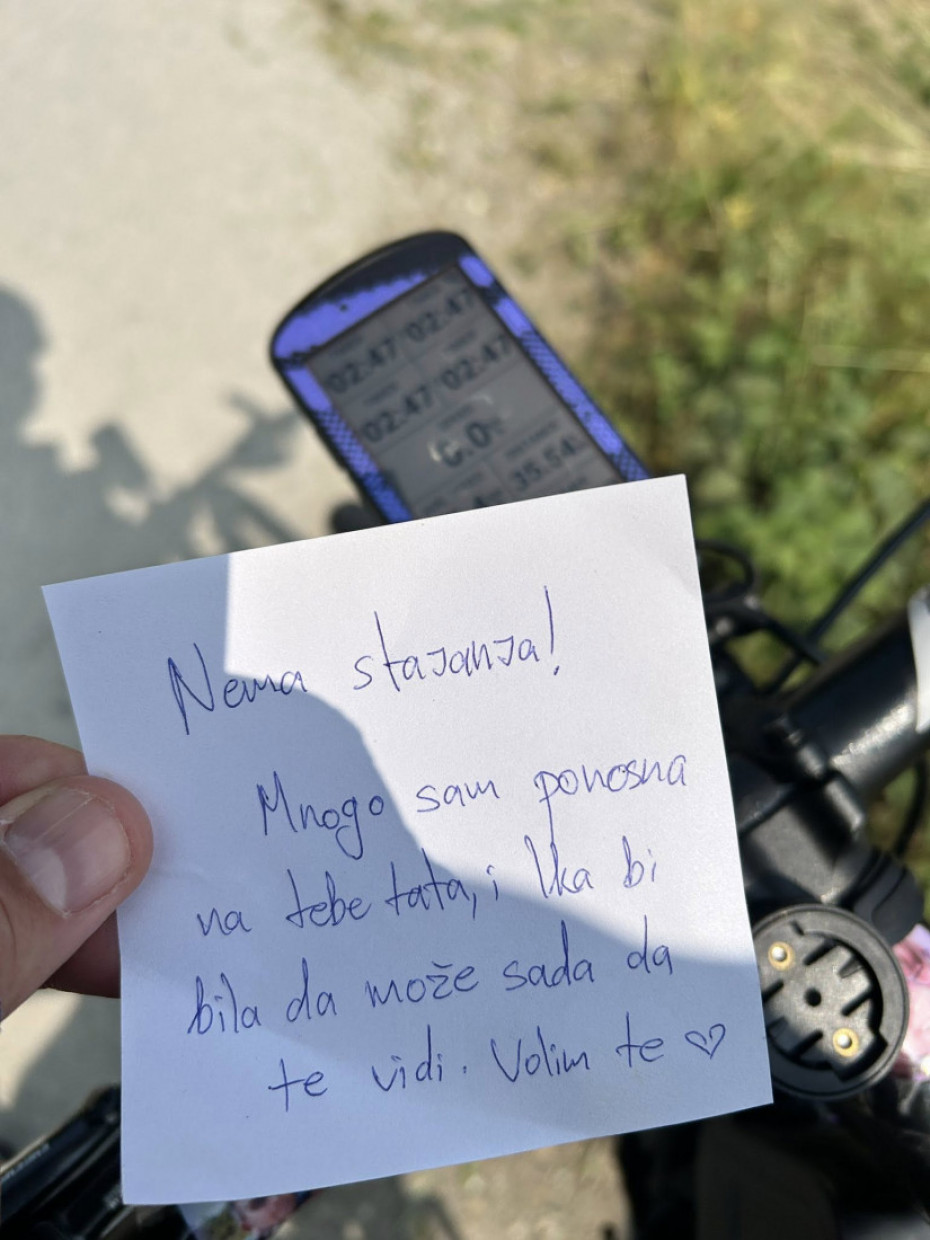 02:47 02:47
02:47 02:47
0.0
35.54
Nema stajanja!
Mnogo sam ponosna
na tebe tata, i Ika bi
bila da može sada da
te vidi. Volim te ♡